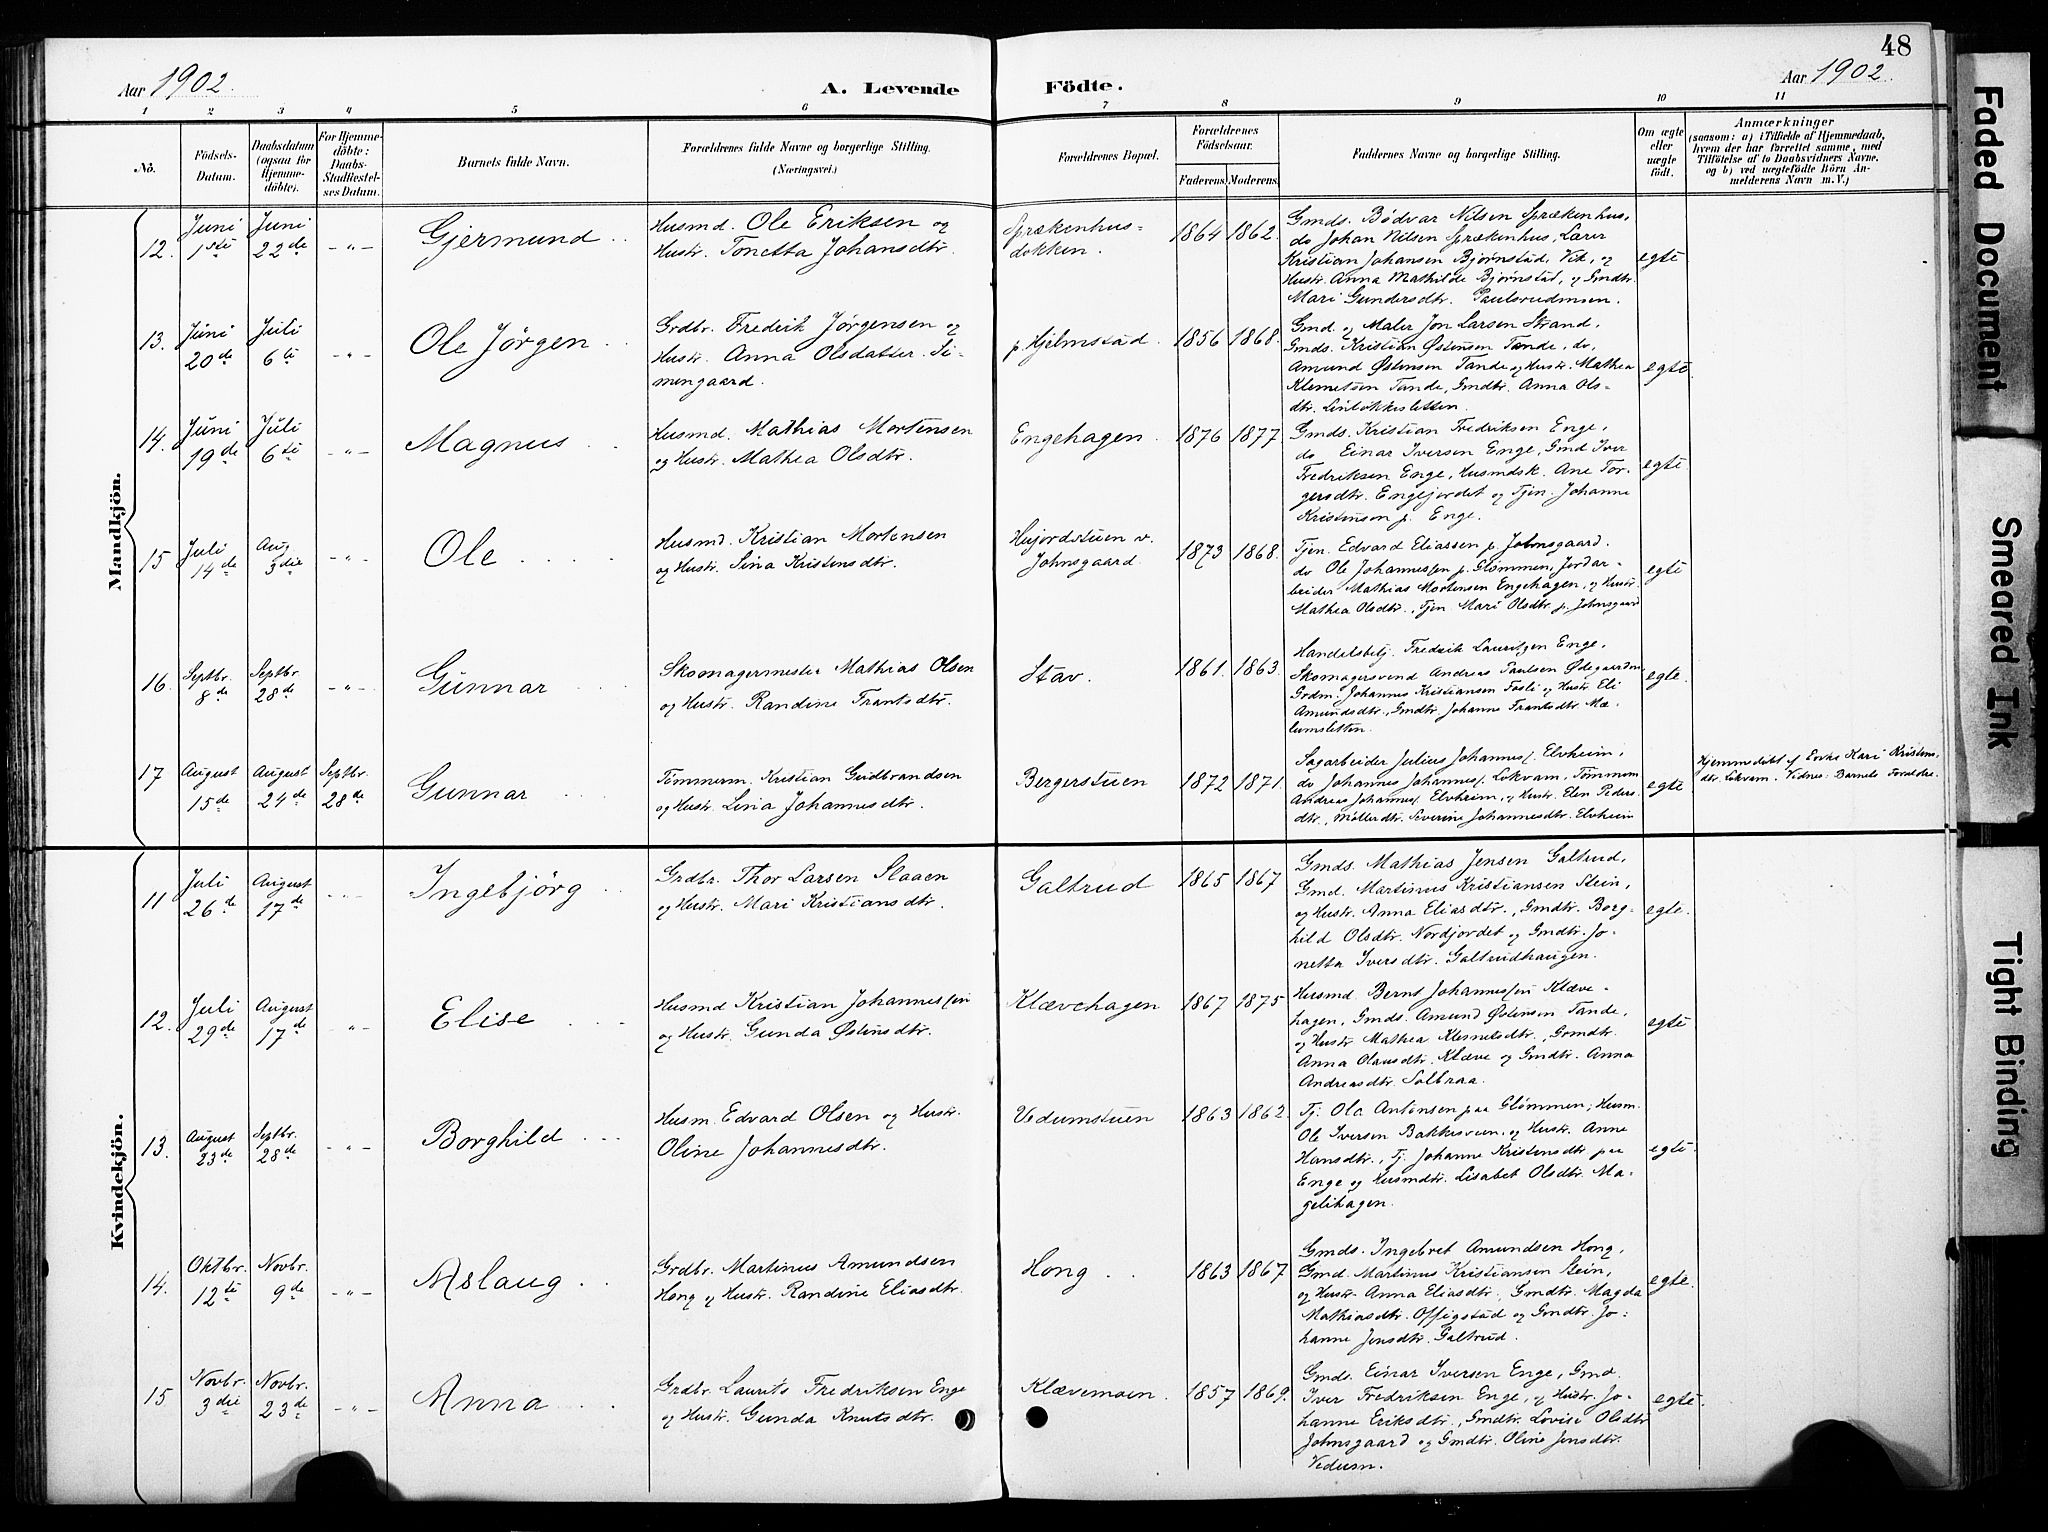 Aar 1902.
A. Levende Födte.
48
Aar 1902.
1 2 3 4 5 6 7 8 9 10 11
No.
Födsels-Datum.
Daabsdatum (ogsaa for Hjemme-döbte).
For Hjemme-döbte: Daabs-Stadfæstel-ses Datum.
Barnets fulde Navn.
Forældrenes fulde Navne og borgerlige Stilling.
(Næringsvei.)
Forældrenes Bopæl.
Forældrenes Födselsaar.
Faderens. Moderens.
Faddernes Navne og borgerlige Stilling.
Om ægte eller uægte födt.
Anmærkninger
(saasom: a) i Tilfælde af Hjemmedaab, hvem der har forrettet samme, med Tilföielse af to Daabsvidners Navne. og b) ved uægtefödte Börn An-melderens Navn m. V.)
Mandkjön.
12. Juni 1ste Juni 22de -"- Gjermund
Husmd. Ole Eriksen og
Hustr. Tonetta Johansdtr.
Sprækenhus-
dokken.
1864 1862.
Gmds. Bødvar Nilsen Sprækenhus,
do Johan Nilsen Sprækenhus, Lærer
Kristian Johansen Bjørnstad, Vik, og
Hustr. Anna Mathilde Bjørnstad, og Gmdtr.
Mari Gundersdtr. Paulsrudmoen.
egte
13. Juni 20de Juli 6te -"- Ole Jörgen
Grdbr. Fredrik Jörgensen og
Hustr. Anna Olsdatter Si-
mengaard.
p. Hjelmstad.
1856 1868.
Gmd. og Maler Jon Larsen Strand,
Gmds. Kristian Østensen Tande, do.
Amund Østensen Tande og Hustr. Mathea
Klemetsen Tande, Gmdtr. Anna Ols-
dtr. Linløkkesletten.
egte.
14. Juni 19de Juli 6te -"- Magnus
Husmd. Mathias Mortensen
og Hustr. Mathea Olsdtr.
Engehagen.
1876 1877.
Gmds. Kristian Fredriksen Enge,
do Einar Iversen Enge, Gmd Iver
Fredriksen Enge, Husmdsk. Ane Tor-
gersdtr. Engejordet og Tjen. Johanne
Kristensen p. Enge.
egte.
15 Juli 14de Aug 3die -"- Ole
Husmd. Kristian Mortensen
og Hustr. Sina Kristensdtr.
Hujordstuen v.
Johnsgaard.
1873 1868.
Tjen. Edvard Eliassen p. Johnsgaard.
do Ole Johannessen p. Glömmen, Jordar-
beider Mathias Mortensen Engehagen, og Hustr.
Mathea Olsdtr., Tjen. Mari Olsdtr. p. Johnsgaard
egte
16. Septbr. 8de Septbr. 28de -"- Gunnar
Skomagermester Mathias Olsen
og Hustr. Randine Frantsdtr.
Stav.
1861. 1863.
Handelsbetj. Fredrik Lauritzen Enge,
Skomagersvend Andreas Paulsen Ødegaarden,
Grdm. Johannes Kristiansen Fosli og Hustr. Eli
Amundsdtr., Gmdtr. Johanne Frantsdtr. Mæ-
lumsletten.
egte.
17 August 15de August 24de Septbr. 28de Gunnar
Tömmerm. Kristian Gudbrandsen
og Hustr. Lina Johannesdtr.
Bergerstuen
1872 1871.
Sagarbeider Julius Johannes. Elvheim,
do Johannes Johannes. Lokvam, Tömmerm
Andreas Johannes. Elvheim, og Hustr. Elen Peders-
dtr., Möllerdtr. Severine Johannesdtr. Elvheim
egte
Hjemmedöbt af Enke Kari Kristens-
dtr. Lokvam. Vidner: Barnets Forældre.
Kvindekjön.
11 Juli 26de August 17de -"- Ingebjörg
Grdbr. Thor Larsen Slaaen
og Hustr. Mari Kristiansdtr.
Galtrud
1865 1867
Gmds. Mathias Jensen Galtrud,
Gmd. Martinus Kristiansen Stein,
og Hustr. Anna Eliasdtr., Gmdtr. Borg-
hild Olsdtr. Nordjordet og Gmdtr. Jo-
netta Iversdtr. Galtrudhaugen.
egte.
12. Juli 29de August 17de -"- Elise
Husmd Kristian Johannessen
og Hustr. Gunda Østensdtr.
Klævehagen
1867 1875
Husmd. Bernt Johannessen Klæve-
hagen, Gmds. Amund Østensen Tande,
og Hustr. Mathea Klemetsdtr., Gmdtr.
Anna Olausdtr. Klæve og Gmdtr. Anna
Andreasdtr. Solbraa.
egte
13. August 23de Septbr. 28de -"- Borghild
Husm. Edvard Olsen og Hustr.
Oline Johannesdtr.
Vedumstuen
1863 1862.
Tj. Ole Antonsen paa Glömmen, Husm.
Ole Iversen Bakkesveen, og Hustr. Anne
Hansdtr., Tj. Johanne Kristensdtr paa
Enge og Husmdtr. Lisabet Olsdtr. Ma-
gelihagen.
egte
14. Oktbr. 12te Novbr. 9de -"- Aslaug
Grdbr. Martinus Amundsen
Hong og Hustr. Randine Eliasdtr.
Hong
1863 1867
Gmds. Ingebret Amundsen Hong,
Gmd. Martinus Kristiansen Stein,
og Hustr. Anna Eliasdtr., Gmdtr. Magda
Mathiasdtr. Offigstad og Gmdtr. Jo-
hanne Jensdtr. Galtrud.
egte.
15 Novbr. 3die Novbr. 23de -"- Anna
Grdbr. Laurits Fredriksen Enge
og Hustr. Gunda Knutsdtr.
Klævemoen.
1857 1869.
Gmds. Einar Iversen Enge, Gmd.
Iver Fredriksen Enge, og Hustr. Jo-
hanne Eriksdtr., Gmdtr. Lovise Olsdtr
Johnsgaard og Gmdtr. Oline Jensdtr.
Vedum.
egte.
Faded Document
Smeared Ink
Tight Binding